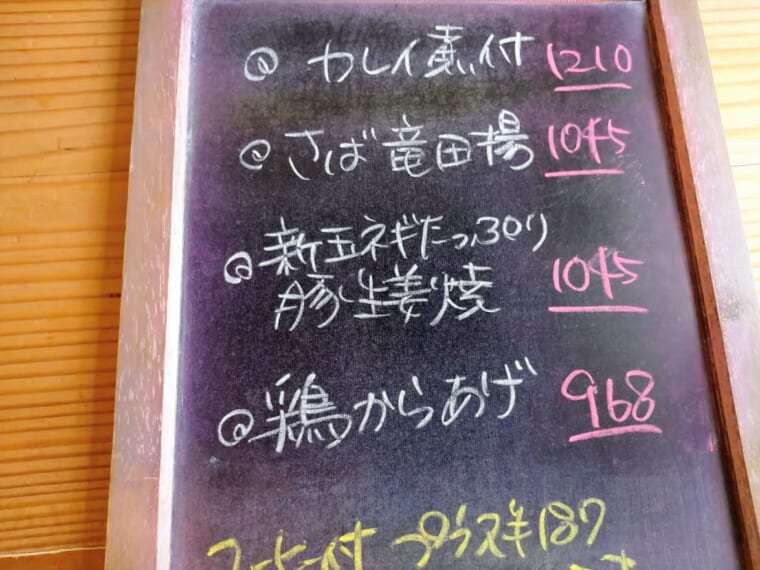 @ カレイ煮付 1210
@ さば竜田揚 1045
@ 新玉ネギたっぷり
豚生姜焼 1045
@ 鶏からあげ 968
コーヒー付 プラス¥187